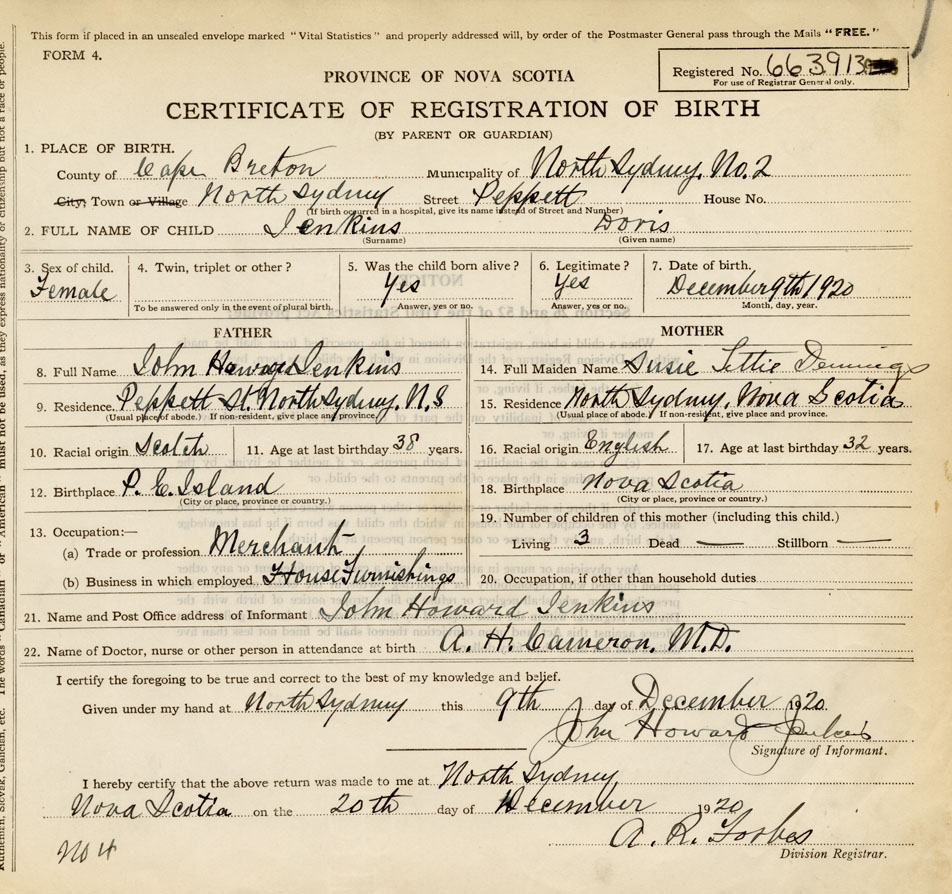 This form if placed in an unsealed envelope marked "Vital Statistics" and properly addressed will, by order of the Postmaster General pass through the Mails "FREE."
FORM 4.
Registered No. 663913
For use of Registrar General only.
PROVINCE OF NOVA SCOTIA
CERTIFICATE OF REGISTRATION OF BIRTH
(BY PARENT OR GUARDIAN)
1. PLACE OF BIRTH.
County of Cape Breton Municipality of North Sydney, No. 2
City; Town or Village North Sydney Street Peppett House No.
(If birth occurred in a hospital, give its name instead of Street and Number)
2. FULL NAME OF CHILD Jenkins Doris
(Surname) (Given name)
3. Sex of child. 4. Twin, triplet or other? 5. Was the child born alive? 6. Legitimate? 7. Date of birth.
Female Yes Yes December 9th 1920
To be answered only in the event of plural birth. Answer, yes or no. Answer, yes or no. Month, day, year.
FATHER
8. Full Name John Howard Jenkins
9. Residence Peppett St. North Sydney. N.S
(Usual place of abode.) If non-resident, give place and province.
10. Racial origin Scotch 11. Age at last birthday 38 years.
12. Birthplace P. E. Island
(City or place, province or country.)
13. Occupation:—
(a) Trade or profession Merchant
(b) Business in which employed House Furnishings
MOTHER
14. Full Maiden Name Susie Lettie Demings
15. Residence North Sydney, Nova Scotia
(Usual place of abode.) If non-resident, give place and province.
16. Racial origin English 17. Age at last birthday 32 years.
18. Birthplace Nova Scotia
(City or place, province or country.)
19. Number of children of this mother (including this child.)
Living 3 Dead — Stillborn —
20. Occupation, if other than household duties
21. Name and Post Office address of Informant John Howard Jenkins
22. Name of Doctor, nurse or other person in attendance at birth A. H. Cameron. M.D.
I certify the foregoing to be true and correct to the best of my knowledge and belief.
Given under my hand at North Sydney this 9th day of December 1920
John Howard Jenkins
Signature of Informant.
I hereby certify that the above return was made to me at North Sydney
Nova Scotia on the 20th day of December 1920
A. R. Forbes
Division Registrar.
No 4